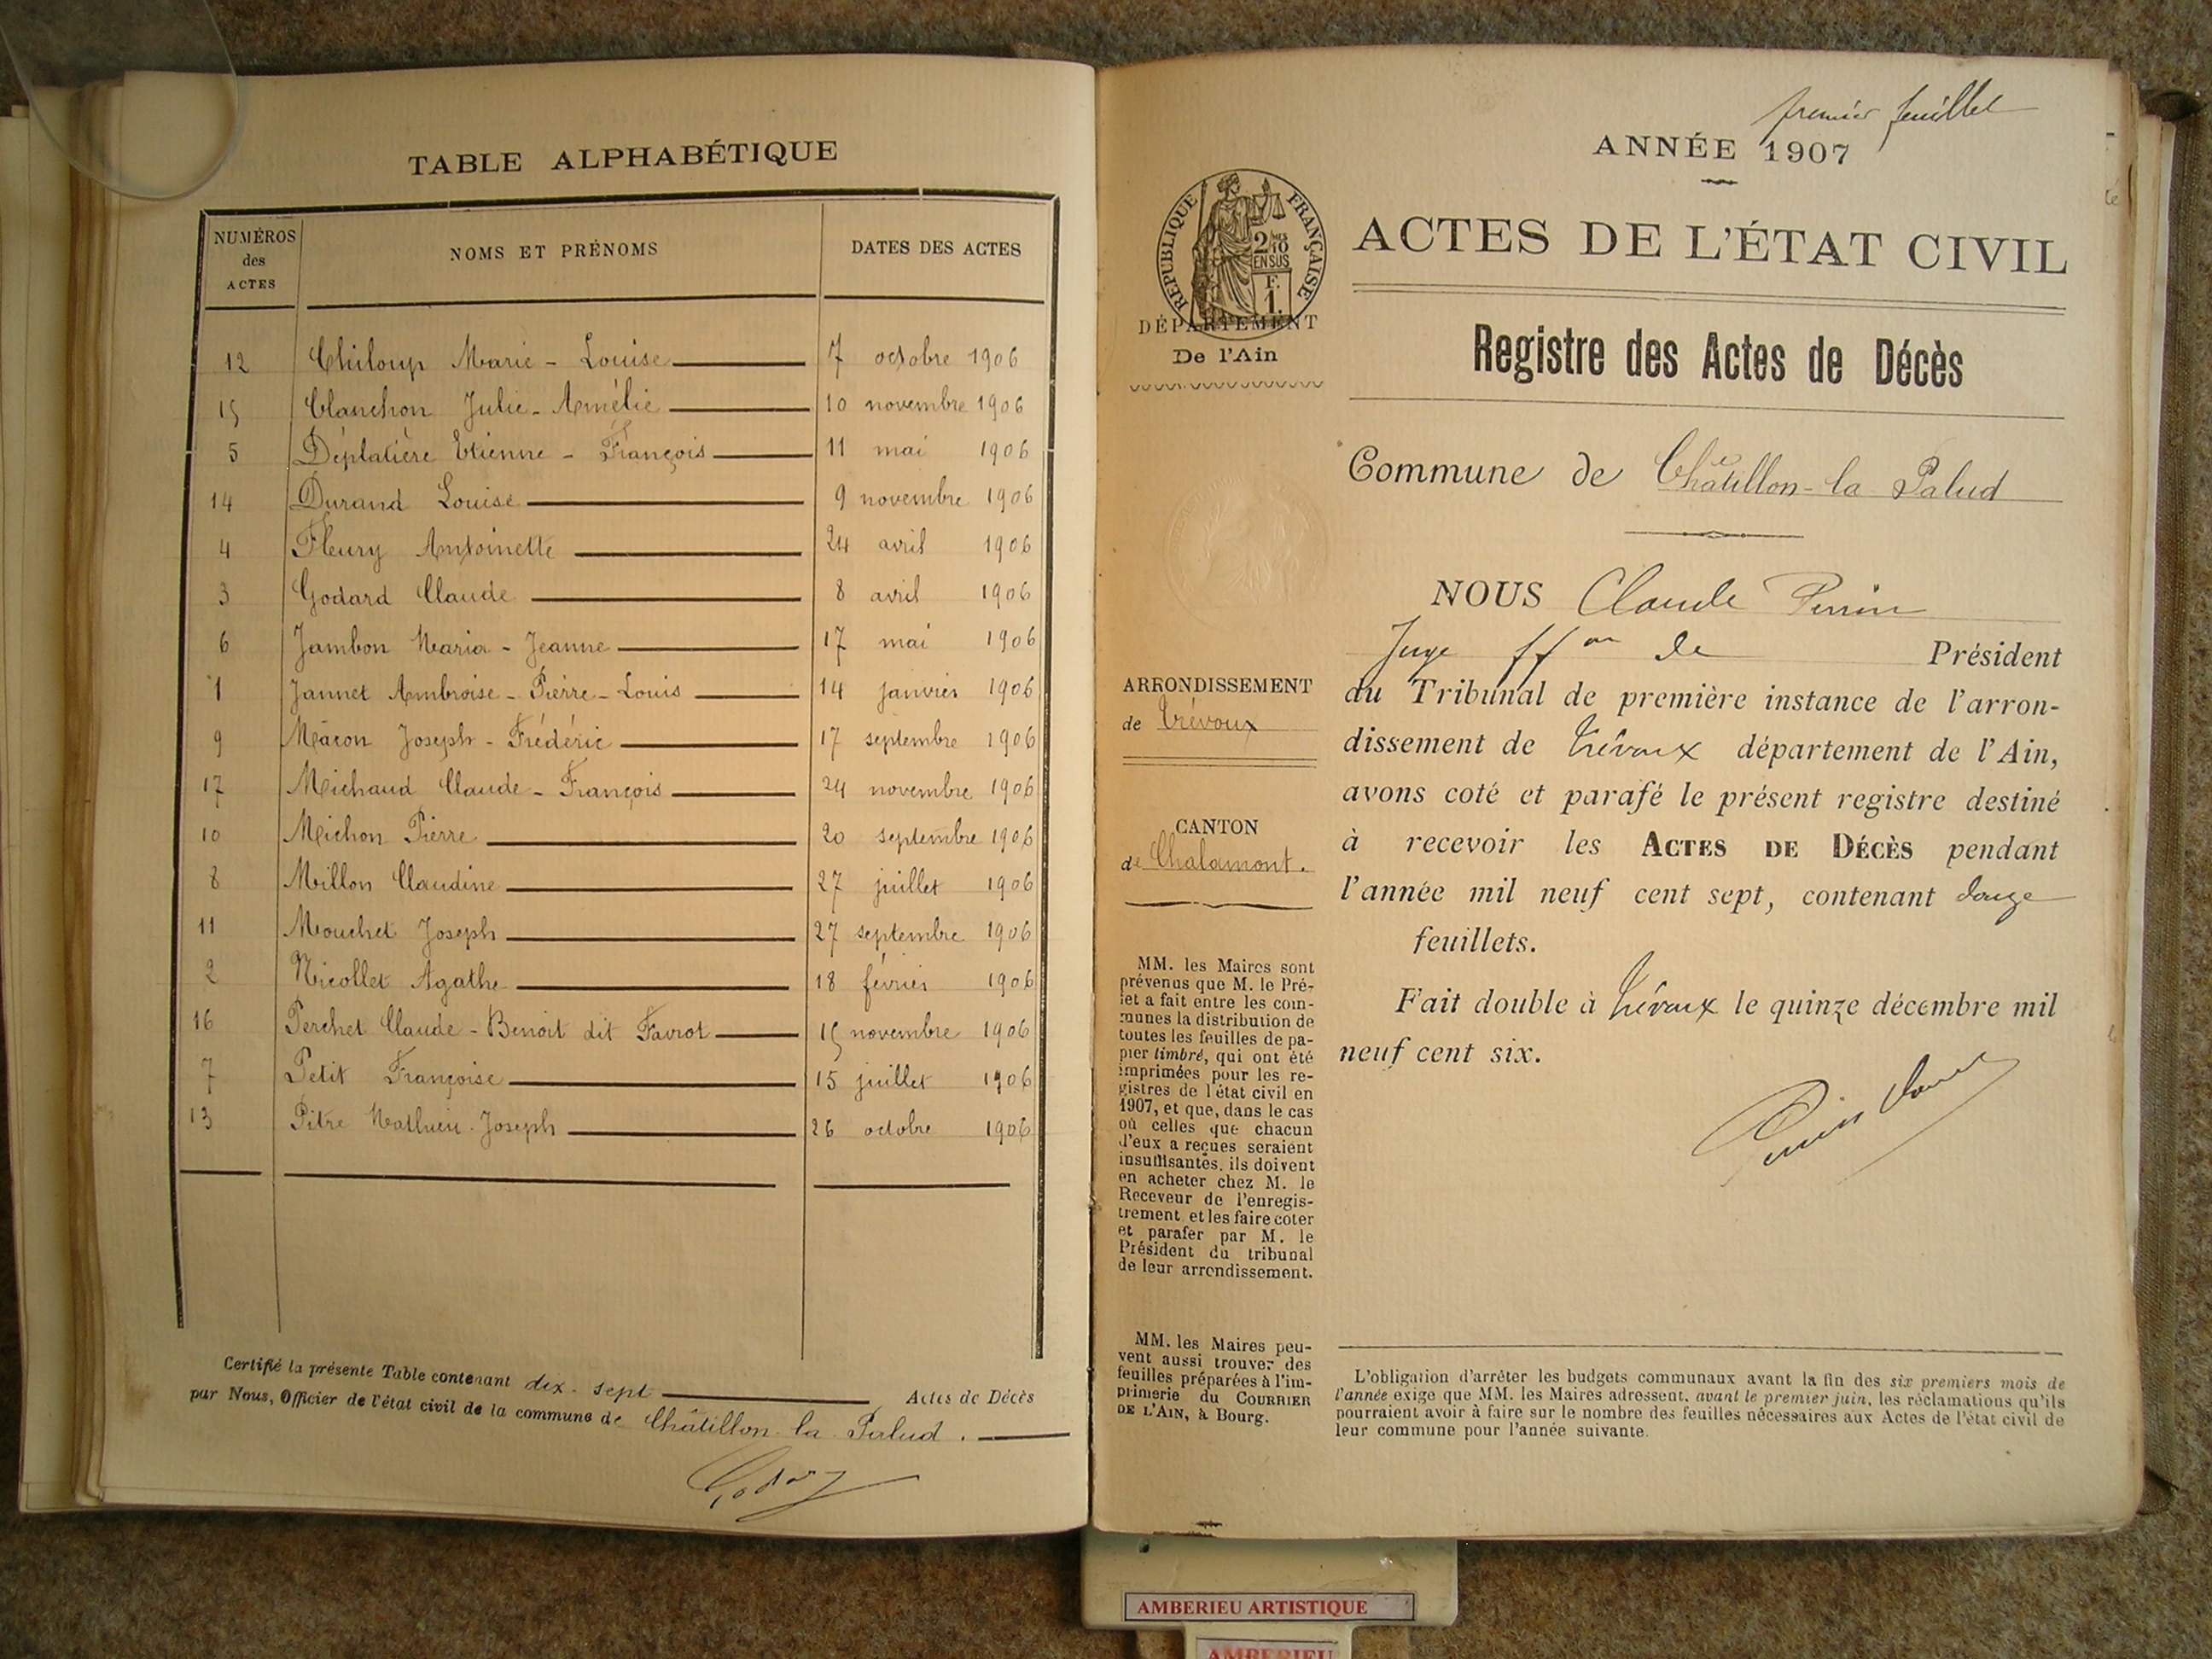 TABLE ALPHABÉTIQUE
NUMÉROS des ACTES NOMS ET PRÉNOMS DATES DES ACTES
12 Chiloup Marie - Louise 7 octobre 1906
15 Clanchon Julie - Amélie 10 novembre 1906
5 Déplatière Etienne - François 11 mai 1906
14 Durand Louise 9 novembre 1906
4 Fleury Antoinette 24 avril 1906
3 Godard Claude 8 avril 1906
6 Jambon Maria - Jeanne 17 mai 1906
1 Jannet Ambroise - Pierre - Louis 14 janvier 1906
9 Mâcon Joseph - Frédéric 17 septembre 1906
17 Michaud Claude - François 24 novembre 1906
10 Michon Pierre 20 septembre 1906
8 Millon Claudine 27 juillet 1906
11 Mouchet Joseph 27 septembre 1906
2 Nicollet Agathe 18 février 1906
16 Perchet Claude - Benoit dit Favrot 15 novembre 1906
7 Petit Françoise 15 juillet 1906
13 Pitre Mathieu - Joseph 26 octobre 1906
Certifié la présente Table contenant dix - sept Actes de Décès
par Nous, Officier de l'état civil de la commune de Châtillon la Palud.
premier feuillet
ANNÉE 1907
RÉPUBLIQUE FRANÇAISE
2/10
EN SUS
F.
1.
ACTES DE L'ÉTAT CIVIL
DÉPARTEMENT
De l'Ain
Registre des Actes de Décès
Commune de Châtillon-la Palud
NOUS Claude Perrin
Juge ffon de Président
ARRONDISSEMENT
de Trévoux
du Tribunal de première instance de l'arron-
dissement de Trévoux département de l'Ain,
avons coté et parafé le présent registre destiné
CANTON
de Chalamont.
à recevoir les ACTES DE DÉCÈS pendant
l'année mil neuf cent sept, contenant douze
feuillets.
Fait double à Trévoux le quinze décembre mil
neuf cent six.
Perrin Claude
MM. les Maires sont
prévenus que M. le Pré-
fet a fait entre les com-
munes la distribution de
toutes les feuilles de pa-
pier timbré, qui ont été
imprimées pour les re-
gistres de l'état civil en
1907, et que, dans le cas
où celles que chacun
d'eux a reçues seraient
insuffisantes, ils doivent
en acheter chez M. le
Receveur de l'enregis-
trement et les faire coter
et parafer par M. le
Président du tribunal
de leur arrondissement.
MM. les Maires peu-
vent aussi trouver des
feuilles préparées à l'im-
primerie du COURRIER
DE L'AIN, à Bourg.
L'obligation d'arrêter les budgets communaux avant la fin des six premiers mois de
l'année exige que MM. les Maires adressent, avant le premier juin, les réclamations qu'ils
pourraient avoir à faire sur le nombre des feuilles nécessaires aux Actes de l'état civil de
leur commune pour l'année suivante.
AMBERIEU ARTISTIQUE
AMBERIEU